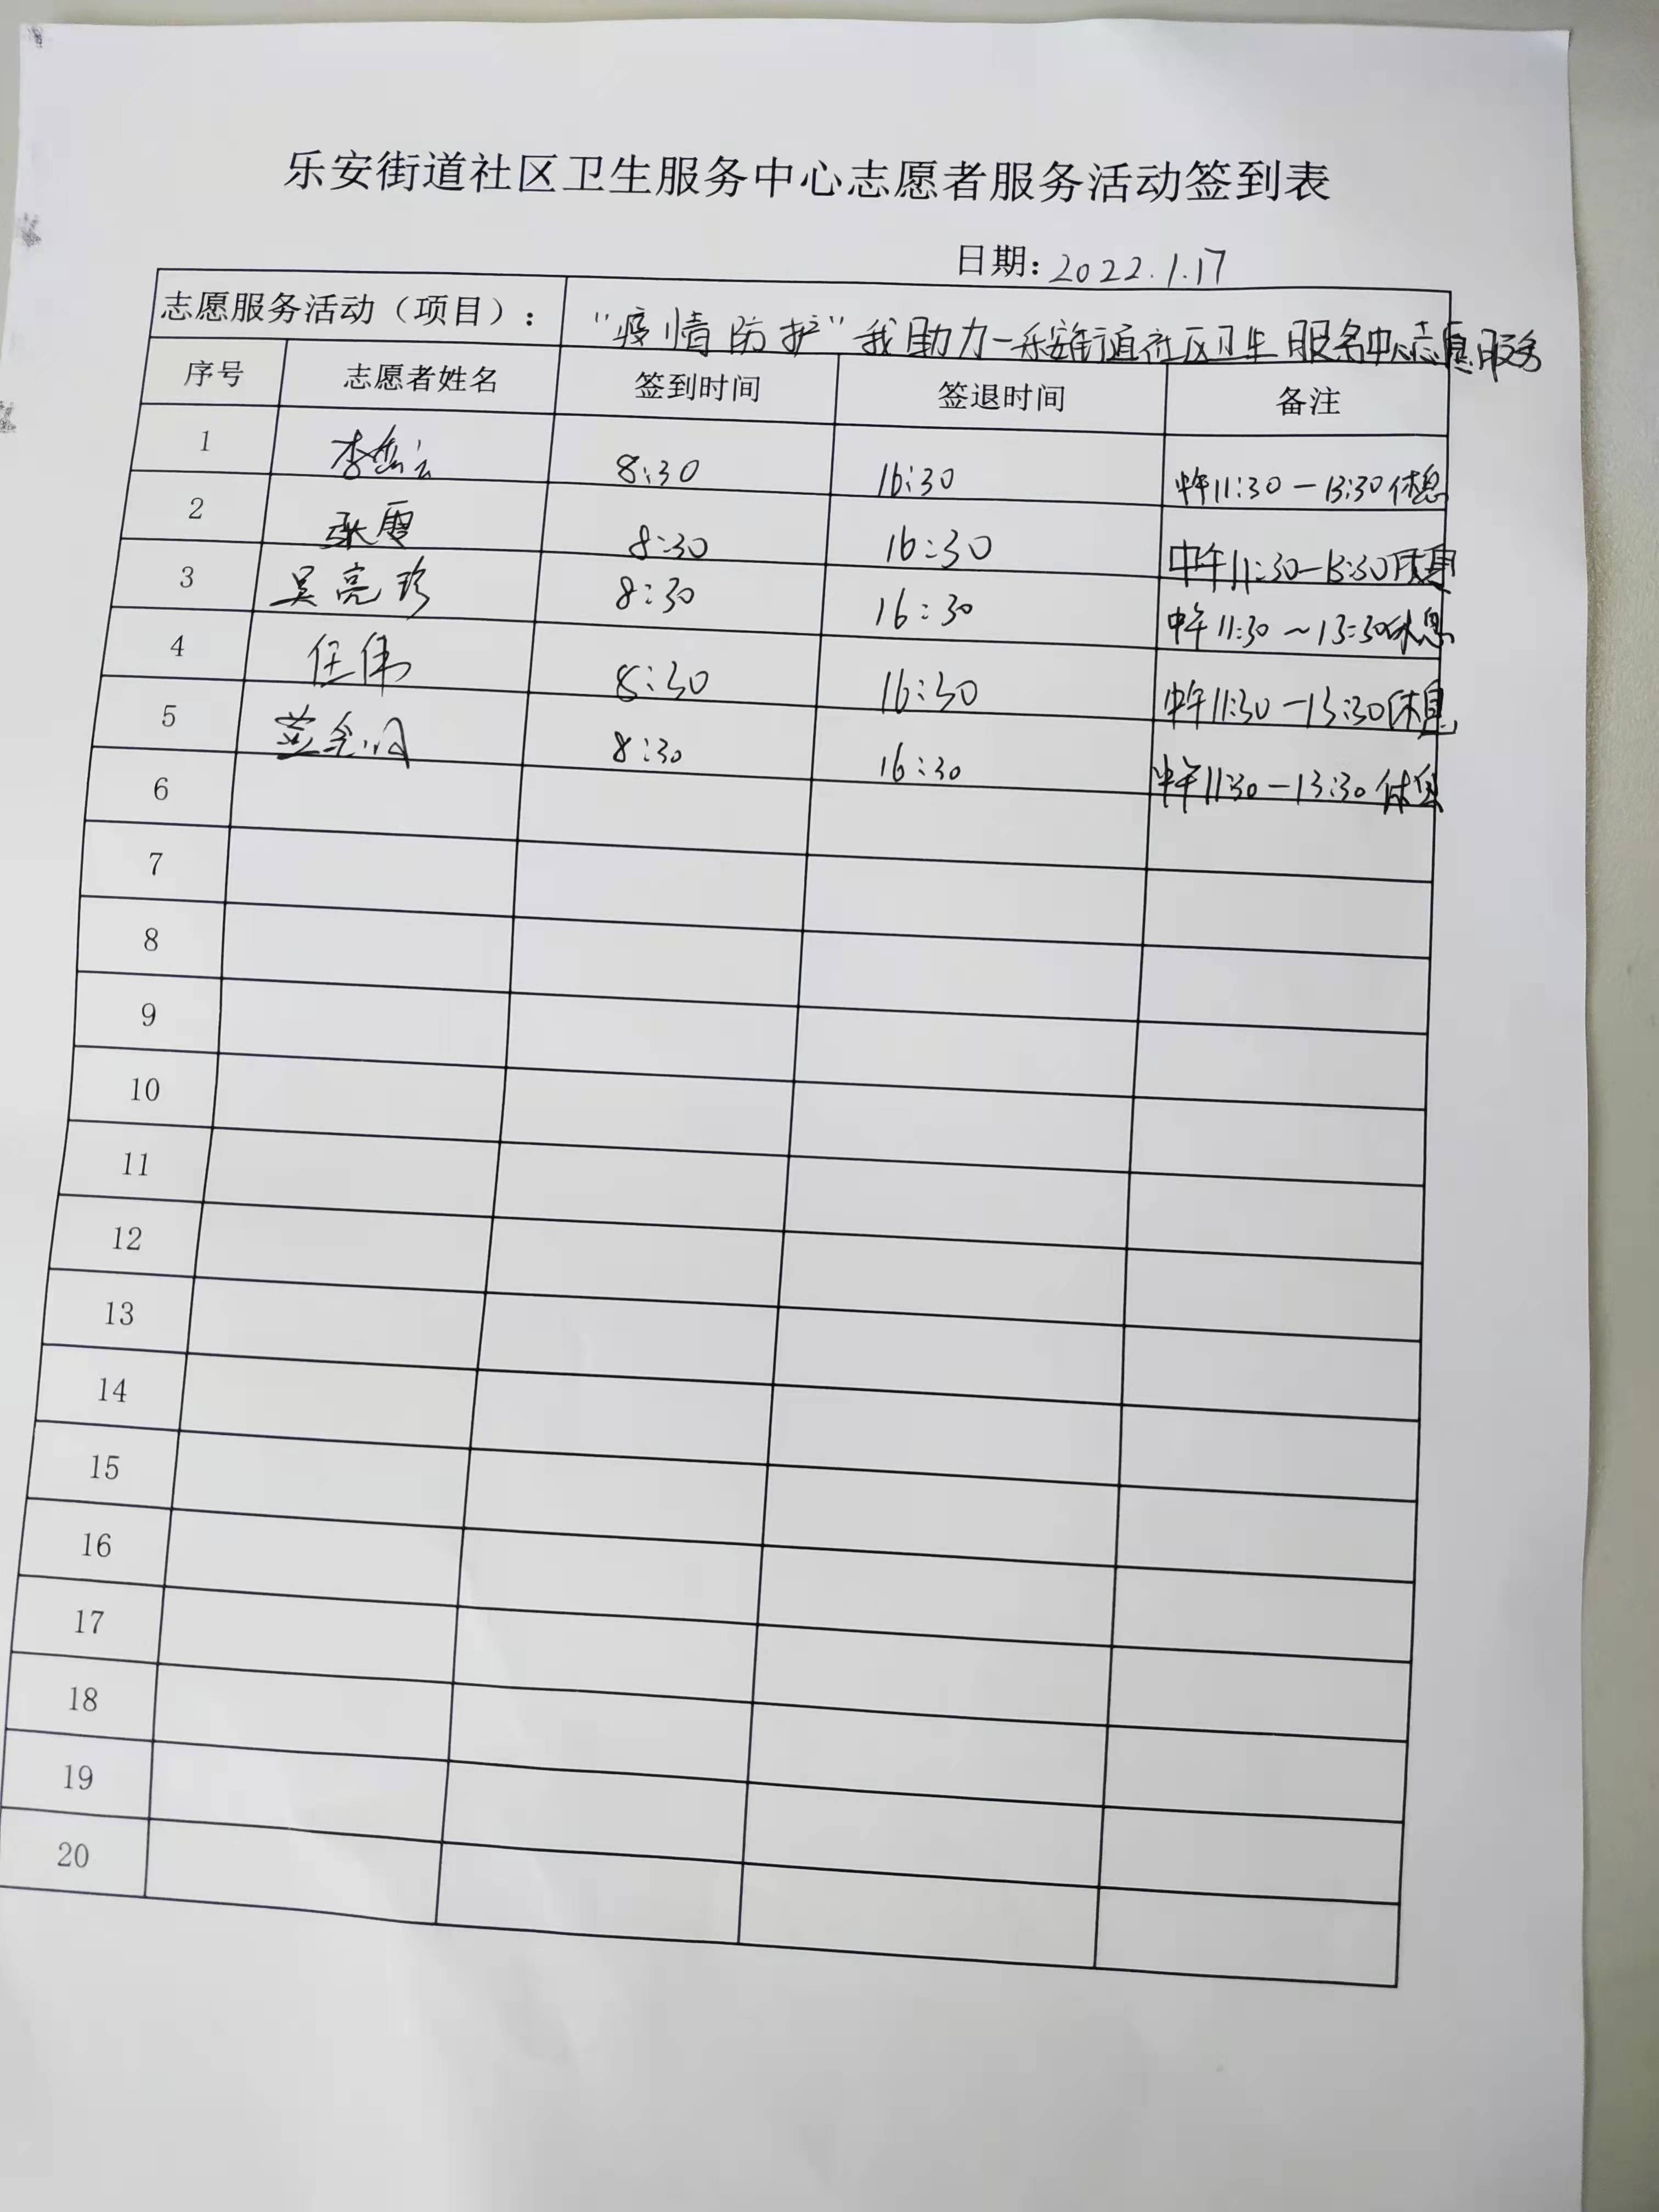 乐安街道社区卫生服务中心志愿者服务活动签到表
日期：2022.1.17
志愿服务活动（项目）： “疫情防护”我助力一乐安街道社区卫生服务中心志愿服务
序号 志愿者姓名 签到时间 签退时间 备注
1 李 8:30 16:30 中午11:30-13:30休息
2 张雯 8:30 16:30 中午11:30-13:30休息
3 吴亮珍 8:30 16:30 中午11:30~13:30休息
4 任伟 8:30 16:30 中午11:30-13:30休息
5 8:30 16:30 中午11:30-13:30休息
6
7
8
9
10
11
12
13
14
15
16
17
18
19
20